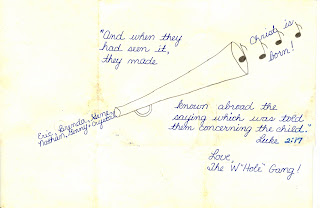 "And when they
had seen it,
they made
Christ is
born!
known abroad the
saying which was told
them concerning the child."
Luke 2:17
Eric, Brynda, Steve,
Nathan, Penny,
Love,
The W"Hole" Gang!